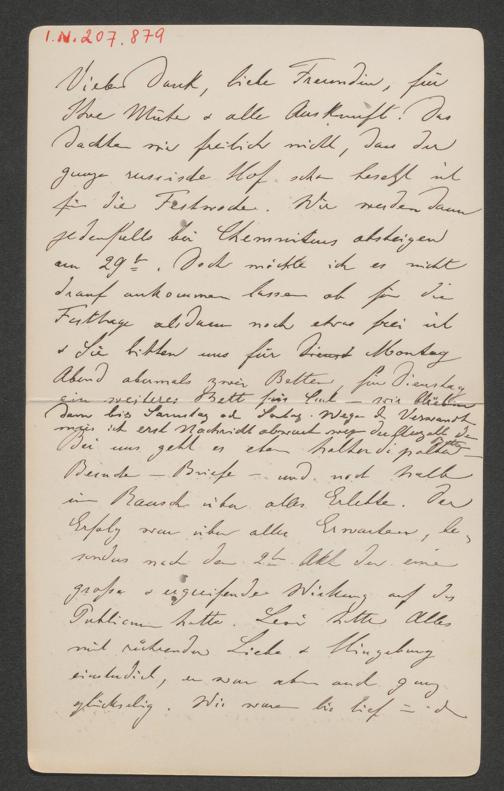 I.N. 207.879
Vielen Dank, liebe Freundin, für
Ihre Mühe & alle Auskunft! Das
dachten wir freilich nicht, dass der
ganze russische Hof schon besetzt ist
für die Festwoche. Wir werden dann
jedenfalls bei Chemnitius absteigen
am 29t. Doch möchte ich es nicht
drauf ankommen lassen ob für die
Festtage alsdann noch etwas frei ist
& Sie bitten uns für Dienst Montag
Abend abermals zwei Betten, für Dienstag
ein weiteres Bett
dann bis Samstag od. Sontag. Wegen der Verwandten
muss ich erst Nachricht abwarten
Bei uns geht es eben
Besuche – Briefe – und noch halb
im Rausch über alles Erlebte. Der
Erfolg war über alles Erwarten, be-
sonders nach dem 2ten Akt der eine
große & ergreifende Wirkung auf das
Publicum hatte. Levi hatte Alles
mit rührender Liebe & Hingebung
einstudirt, er war aber auch ganz
glückselig. Wir waren bis tief in d